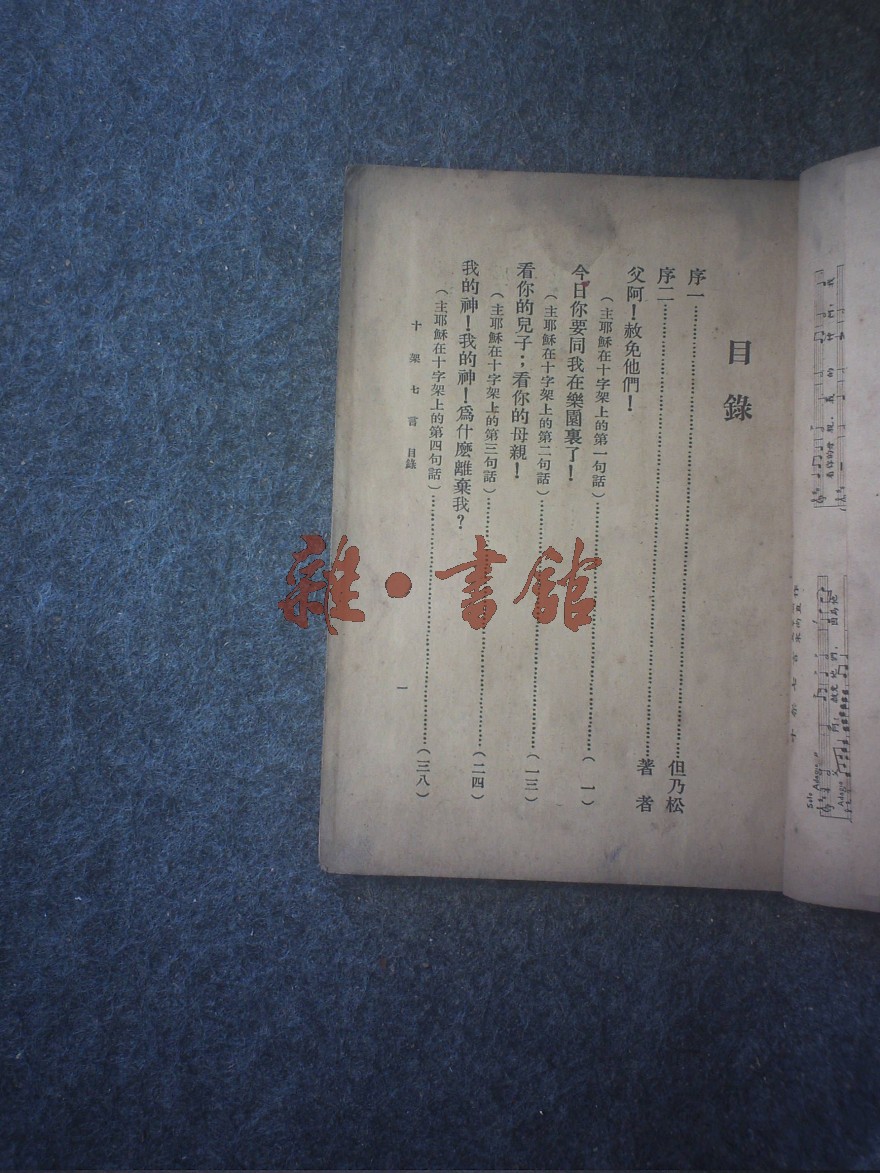 目錄
序一……但乃松
序二……著者
父阿!赦免他們!
(主耶穌在十字架上的第一句話)……(一)
今日你要同我在樂園裏了!
(主耶穌在十字架上的第二句話)……(一三)
看你的兒子;看你的母親!
(主耶穌在十字架上的第三句話)……(二四)
我的神!我的神!爲什麽離棄我?
(主耶穌在十字架上的第四句話)……(三八)
十架七言 目錄
一
雜·書館